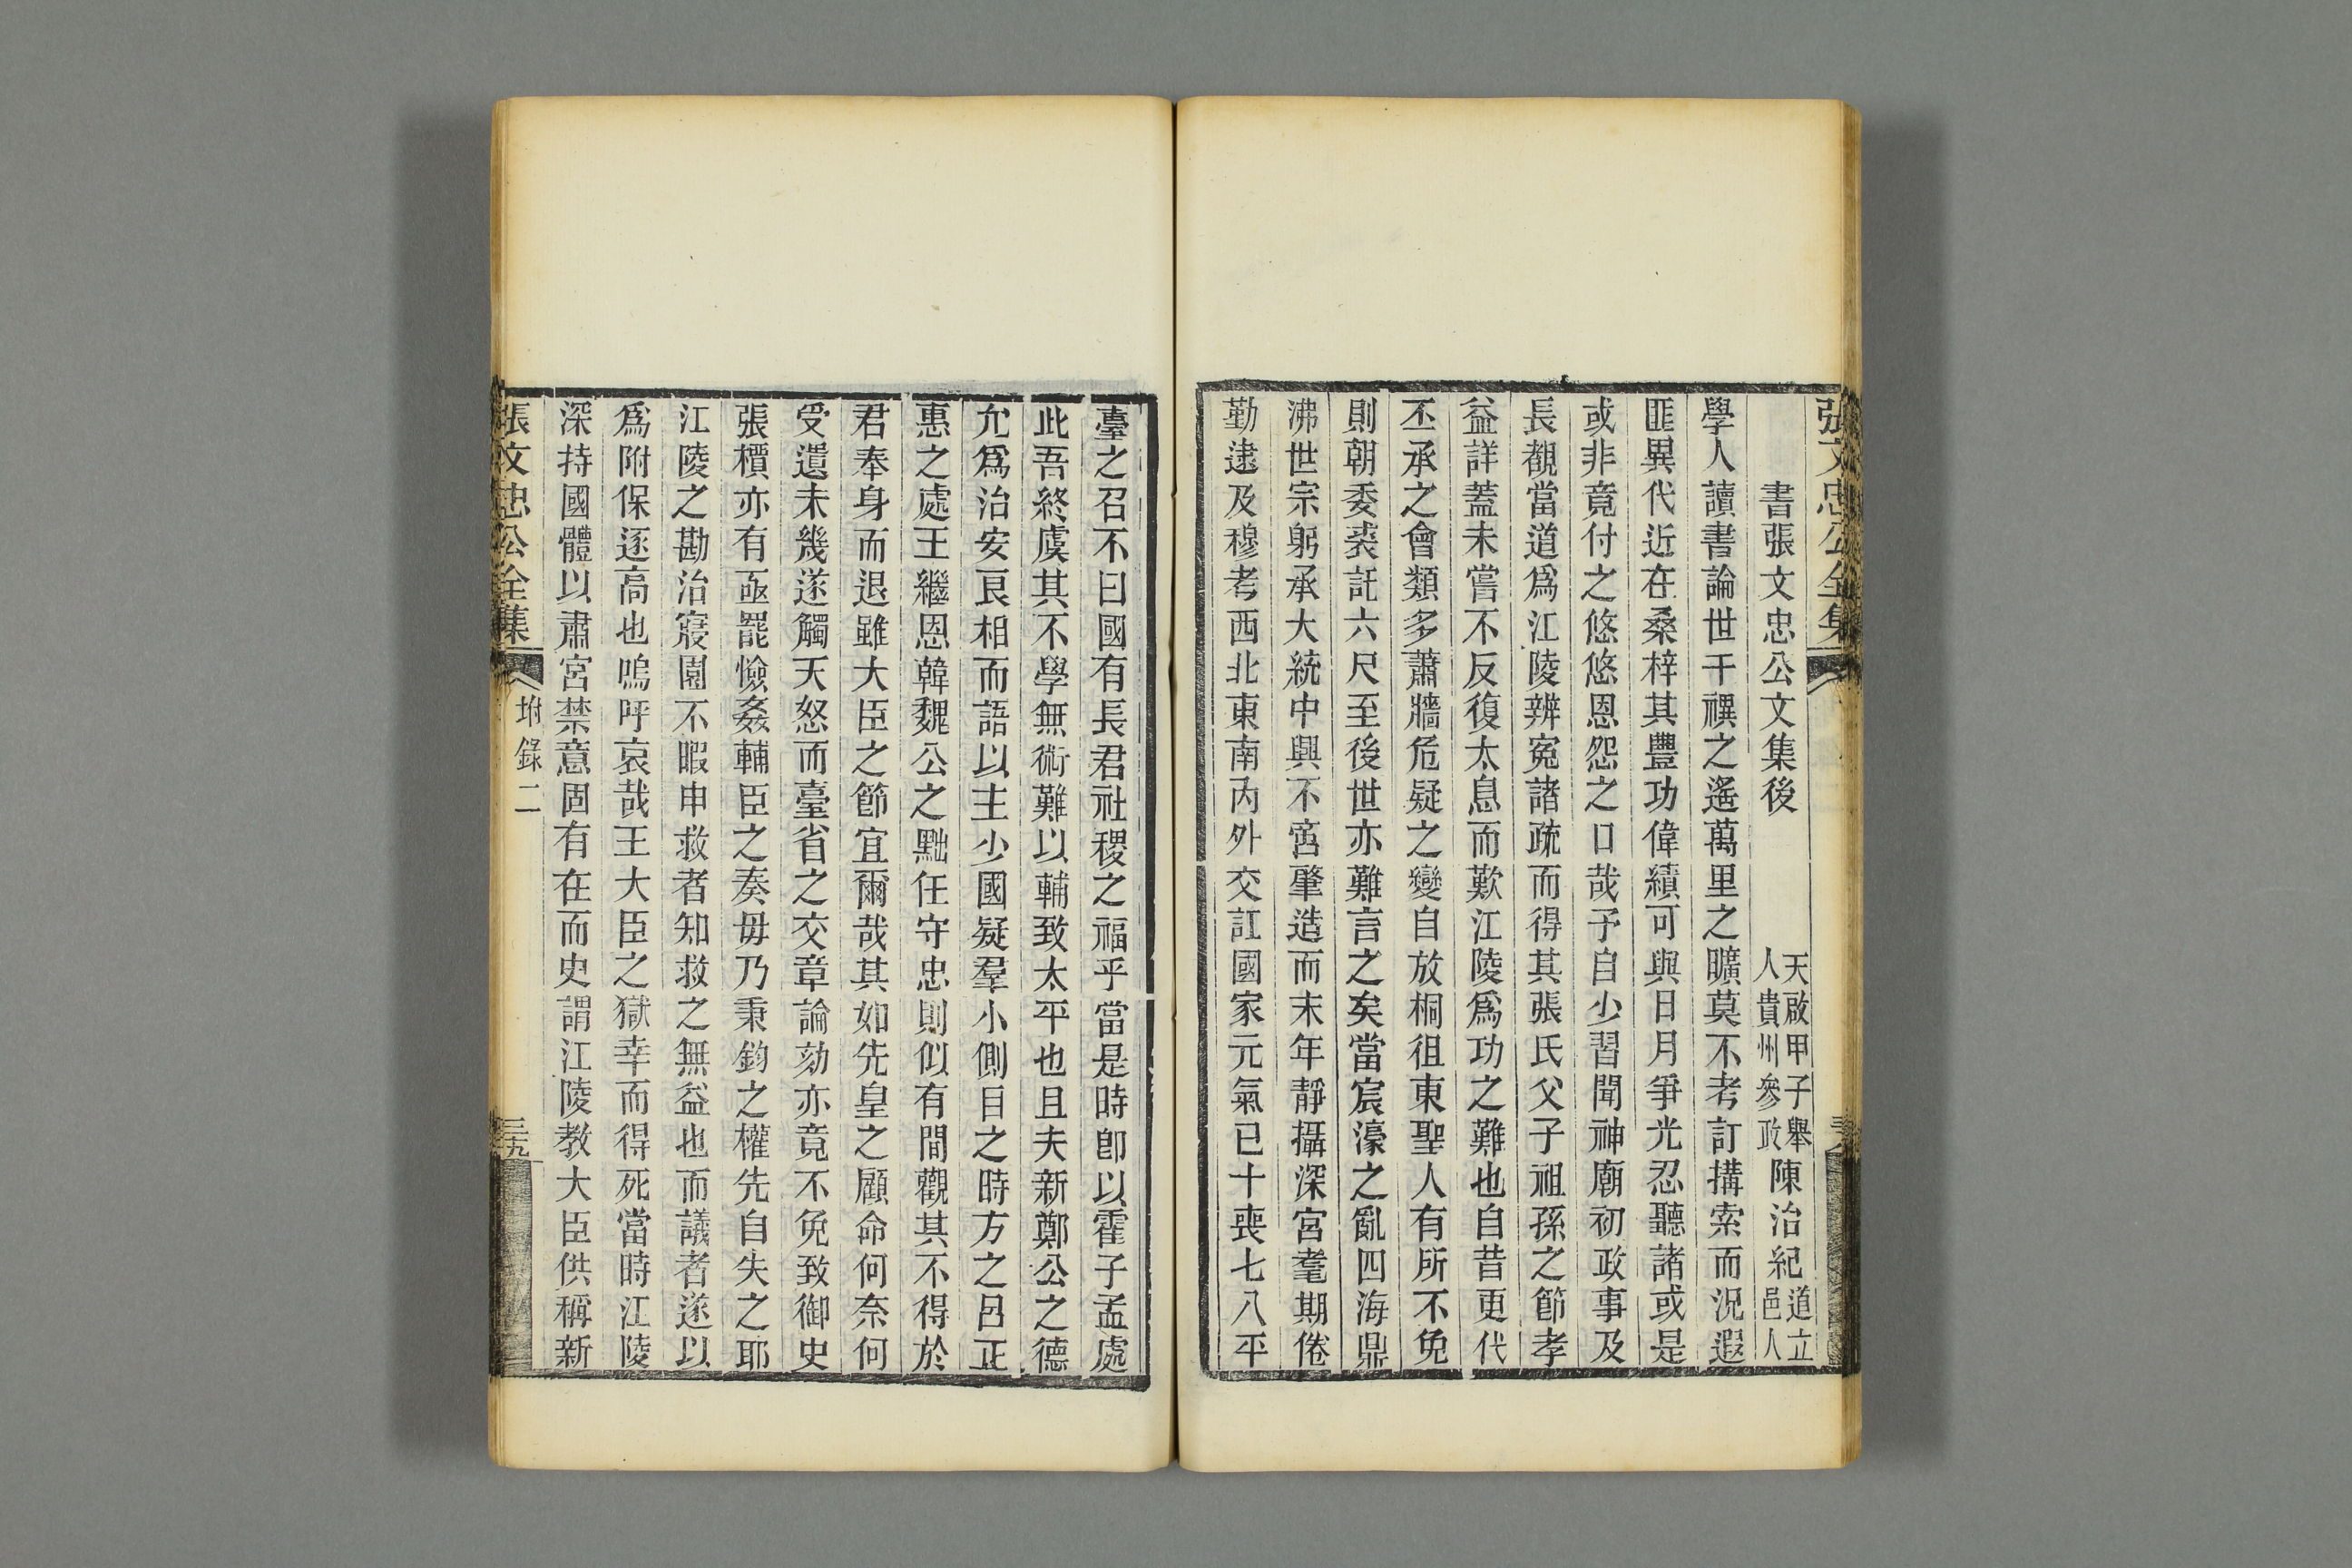 張文忠公全集
書張文忠公文集後 天啟甲子舉人貴州參政陳治紀道立邑人
學人讀書論世千禩之遙萬里之曠莫不考訂搆索而況遐
匪異代近在桑梓其豐功偉績可與日月爭光忍聽諸或是
或非竟付之悠悠恩怨之口哉予自少習聞神廟初政事及
長觀當道爲江陵辨寃諸疏而得其張氏父子祖孫之節孝
益詳蓋未嘗不反復太息而歎江陵爲功之難也自昔更代
丕承之會類多蕭牆危疑之變自放桐徂東聖人有所不免
則朝委裘託六尺至後世亦難言之矣當宸濠之亂四海鼎
沸世宗躬承大統中興不啻肇造而末年靜攝深宮耄期倦
勤逮及穆考西北東南內外交訌國家元氣已十喪七八平
臺之召不曰國有長君社稷之福乎當是時卽以霍子孟處
此吾終虞其不學無術難以輔致太平也且夫新鄭公之德
允爲治安良相而語以主少國疑羣小側目之時方之呂正
惠之處王繼恩韓魏公之黜任守忠則似有間觀其不得於
君奉身而退雖大臣之節宜爾哉其如先皇之顧命何奈何
受遺未幾遂觸天怒而臺省之交章論劾亦竟不免致御史
張檟亦有亟罷憸姦輔臣之奏毋乃秉鈞之權先自失之耶
江陵之勘治寢園不暇申救者知救之無益也而議者遂以
爲附保逐高也嗚呼哀哉王大臣之獄幸而得死當時江陵
深持國體以肅宮禁意固有在而史謂江陵教大臣供稱新
張文忠公全集 坿錄二 三九